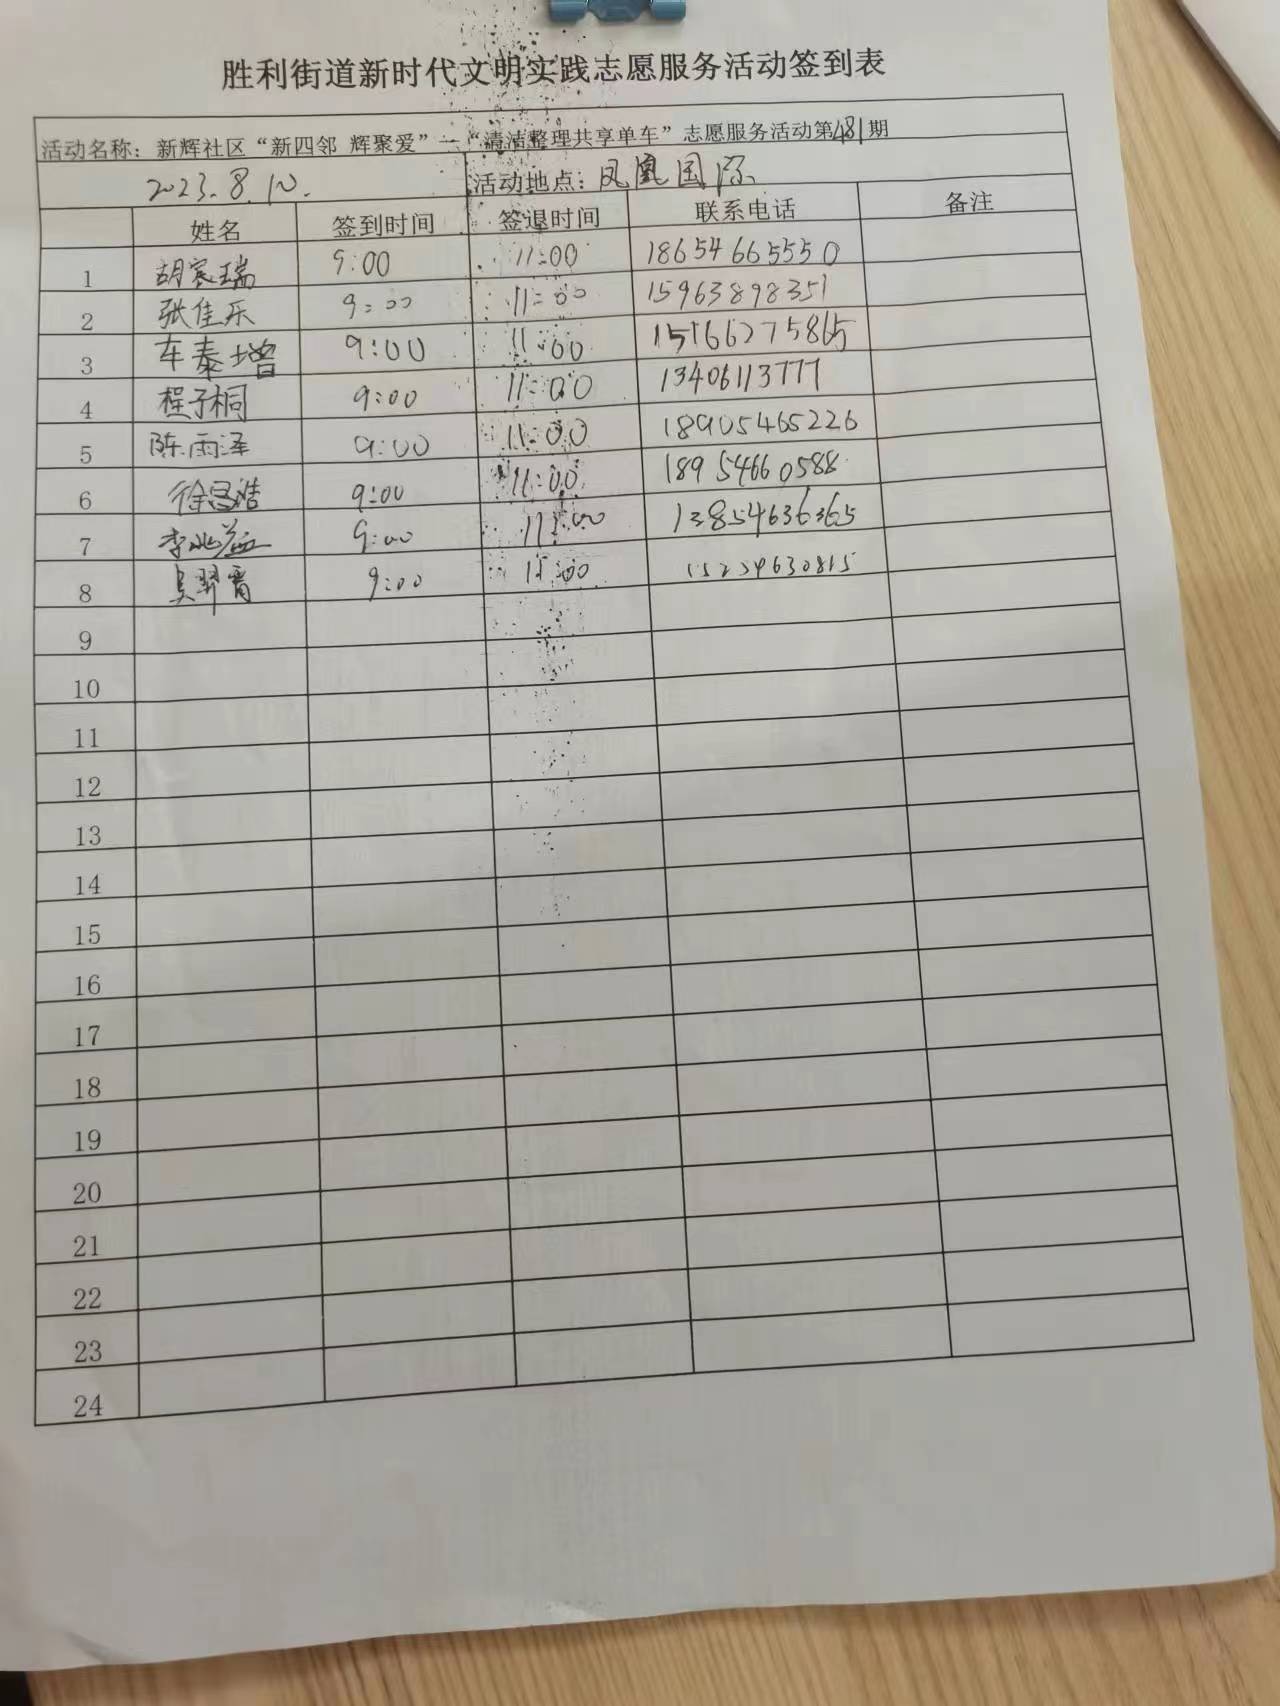 胜利街道新时代文明实践志愿服务活动签到表
活动名称：新辉社区“新四邻 辉聚爱”—“清洁整理共享单车”志愿服务活动第481期
2023.8.10. 活动地点：凤凰国际
姓名 签到时间 签退时间 联系电话 备注
1 胡宸瑞 9:00 11:00 18654665550
2 张佳乐 9:00 11:00 15963898351
3 车泰增 9:00 11:00 15166275865
4 程子桐 9:00 11:00 13406113777
5 陈雨泽 9:00 11:00 18905465226
6 徐 浩 9:00 11:00 18954660588
7 李兆益 9:00 11:00 13854636365
8 吴羿霄 9:00 11:00
9
10
11
12
13
14
15
16
17
18
19
20
21
22
23
24